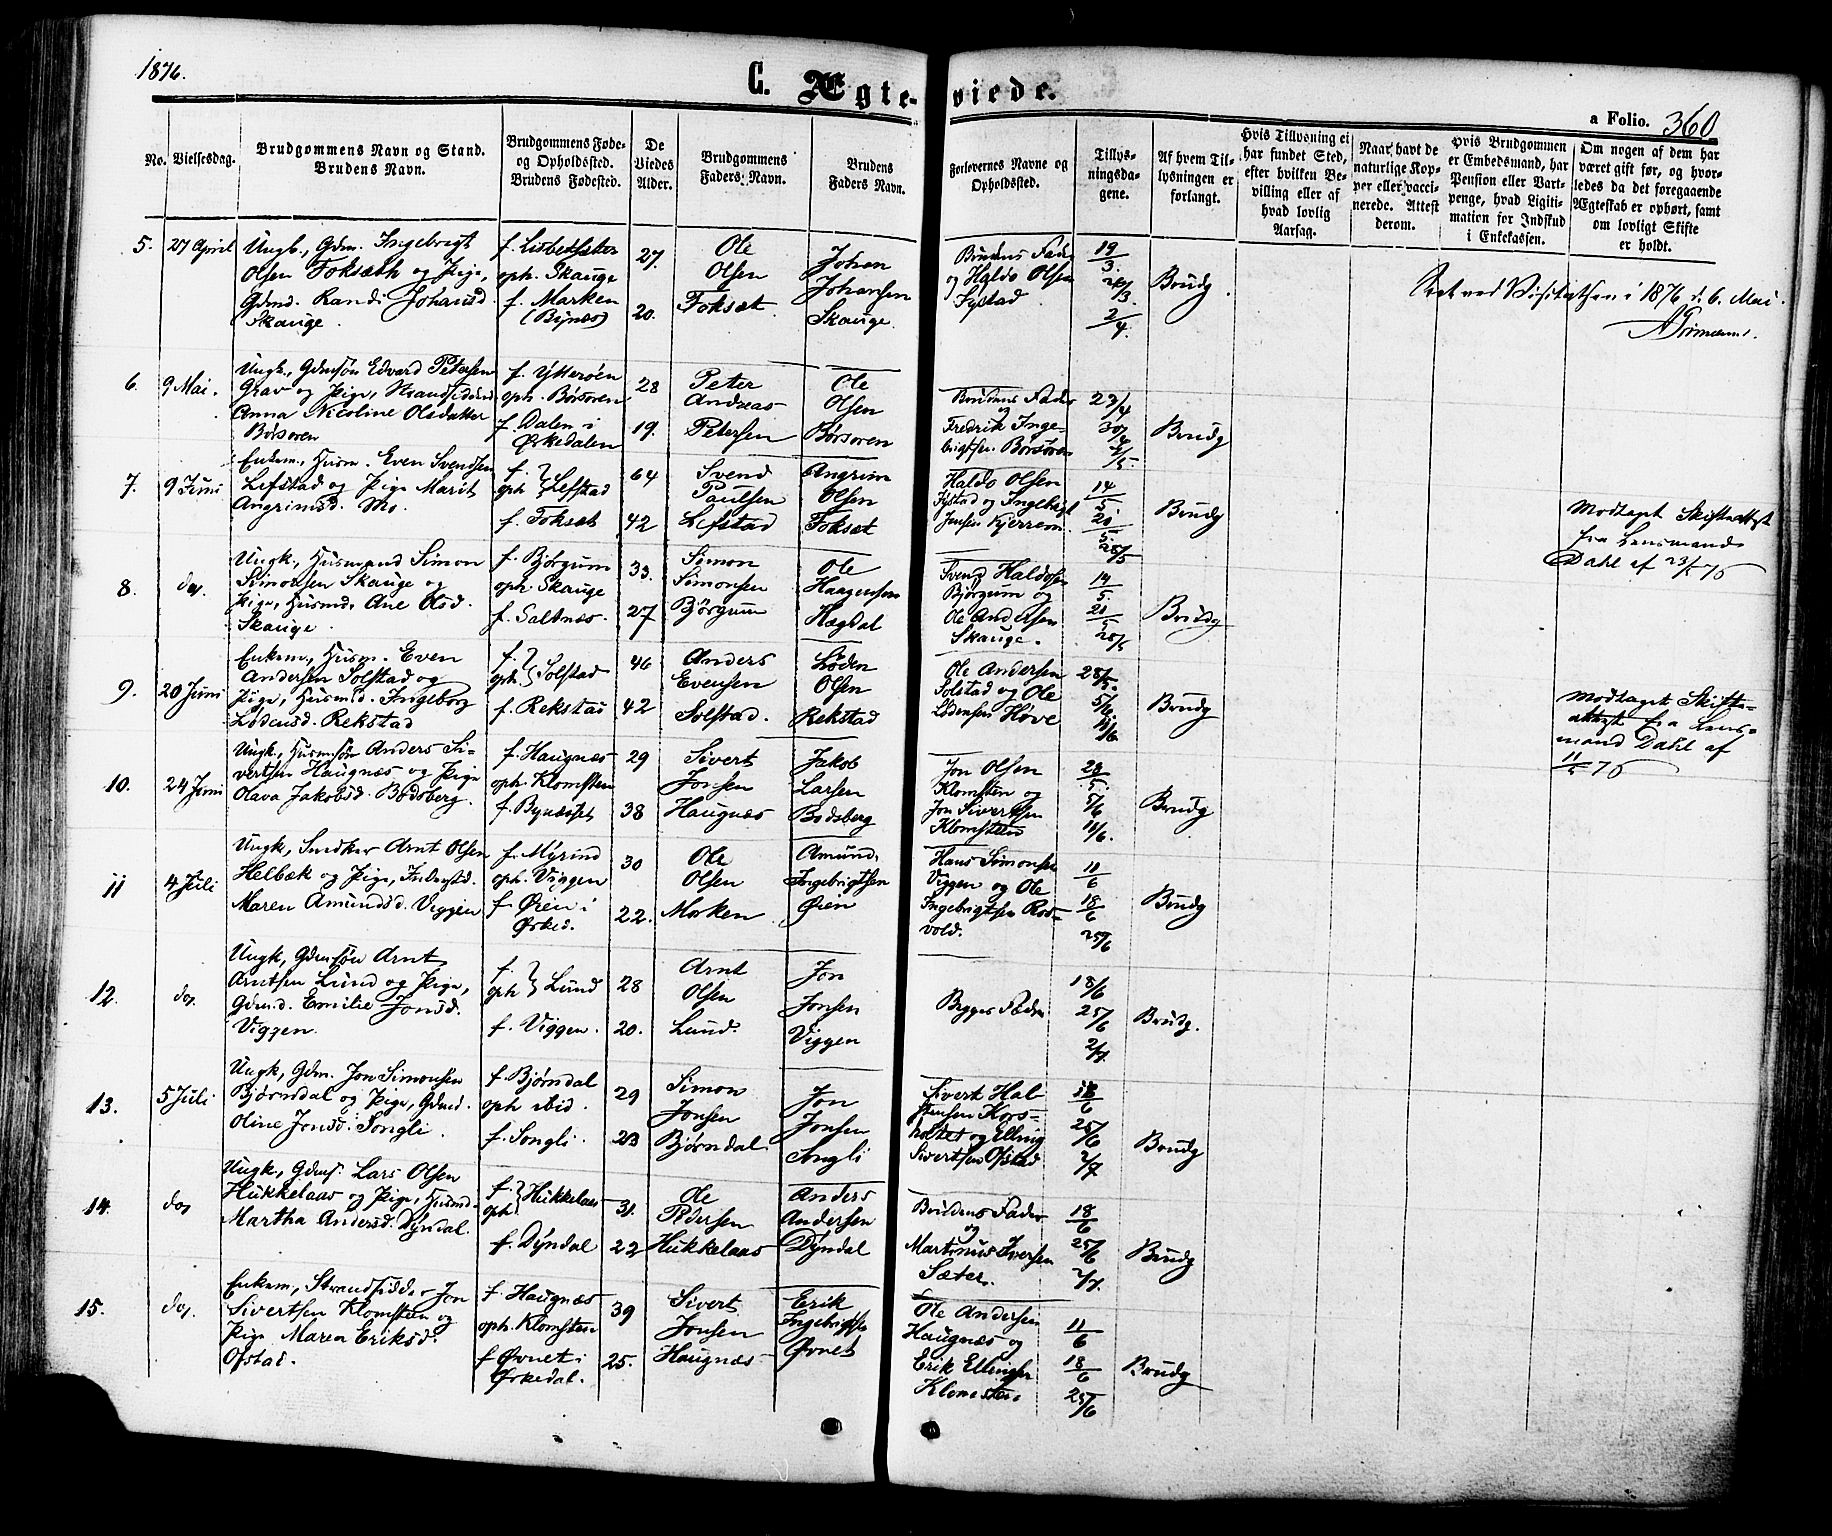 1876.
C. Ægteviede.
a Folio. 360
No.
Vielsesdag.
Brudgommens Navn og Stand.
Brudens Navn.
Brudgommens Føde-
og Opholdsted.
Brudens Fødested.
De
Viedes
Alder.
Brudgommens
Faders Navn.
Brudens
Faders Navn.
Forlovernes Navne og
Opholdssted.
Tillys-
ningsda-
gene.
Af hvem Til-
lysningen er
forlangt.
Hvis Tillysning ei
har fundet Sted,
efter hvilken Be-
villing eller af
hvad lovlig
Aarsag.
Naar havt de
naturlige Kop-
per eller vacci-
nerede. Attest
derom.
Hvis Brudgommen
er Embedsmand, har
Pension eller Vart-
penge, hvad Ligiti-
mation for Indskud
i Enkekassen.
Om nogen af dem har
været gift før, og hvor-
ledes da det foregaaende
Ægteskab er ophørt, samt
om lovligt Skifte
er holdt.
5. 27 April
Ungk., Gdm. Ingebrigt
Olsen Foksæth og Pige,
Gdmd. Randi Johansd.
Skauge.
f. Lisbetsæter
oph. Skauge
f. Marken
(Bynes)
27.
20.
Ole
Olsen
Foksæt.
Johan
Johansen
Skauge.
Brudens Fader
og Haldo Olsen
Fystad
19/3.
26/3
2/4
Brudg.
Seet ved Visitatsen i 1876 d. 6. Mai.
6. 9 Mai.
Ungk., Gdmsøn Edvard Petersen
Grav og Pige, Strandsidderd
Anna Nicoline Olsdatter
Børsøren
f. Ytterøen
oph. Børsøren
f. Dalen i
Ørkedalen
28
19.
Peter
Andreas
Petersen
Ole
Olsen
Børsøren
Brudens Fader
og
Fredrik Inge-
brigtsen Børsøren
23/4
30/4
7/5.
Brudg
7. 9 Juni
Enkem., Husm. Even Svendsen
Lefstad og Pige Marit
Angrimsd. Mo.
f. }
oph. } Lefstad
f. Foksæt
64
42
Svend
Paulsen
Lefstad
Angrim
Olsen
Foksæt
Haldo Olsen
Fystad og Ingebrigt
Jensen Kjerrem
14/5
21/5
25/5
Brudg
Modtaget Skifteattest
fra Lensmand
Dahl af 23/5 76
8. do.
Ungk., Husmand Simon
Simonsen Skauge og
Pige, Husmd. Ane Olsd.
Skauge.
f. Bjørgum
oph. Skauge
f. Saltnæs.
33.
27
Simon
Simonsen
Bjørgum
Ole
Haagensen
Hægdal
Svend Haldosen
Bjørgum og
Ole Andersen
Skauge.
14/5.
21/5
25/5
Brudg
9. 20 Juni
Enkem., Husm. Even
Andersen Solstad og
Pige, Husmd. Ingeborg
Lodensd. Rekstad
f. }
oph. } Solstad
f. Rekstad
46
42
Anders
Evensen
Solstad.
Loden
Olsen
Rekstad
Ole Andersen
Solstad og Ole
Lodensen Hove
25/5.
5/6
11/6.
Brudg
Modtaget Skifte-
attest fra Lens-
mand Dahl af
11/5 76
10. 24 Juni
Ungk., Husmsøn Anders Si-
vertsen Haugnæs og Pige
Olava Jakobsd. Bodsberg.
f. Haugnæs
oph. Klomsten
f. Bynæsset
29
38
Sivert
Jonsen
Haugnæs
Jakob
Larsen
Bodsberg
Jon Olsen
Klomsten og
Jon Sivertsen
Klomsten
28/5.
5/6
11/6.
Brudg
11 4 Juli
Ungk., Snedker Arnt Olsen
Helbæk og Pige, Inderstd.
Maren Amundsd. Viggen
f. Myrind
oph. Viggen
f. Øien i
Ørked.
30
22.
Ole
Olsen
Morken
Amund
Ingebrigtsen
Øien
Hans Simonsen
Viggen og Ole
Ingebrigtsen Ros-
vold.
11/6
18/6
25/6
Brudg
12. do.
Ungk., Gdmsøn Arnt
Arntsen Lund og Pige,
Gdmd. Emilie Jonsd.
Viggen.
f. }
oph. } Lund
f. Viggen.
28
20.
Arnt
Olsen
Lund.
Jon
Jonsen
Viggen
Begges Fædre
18/6
25/6
2/7.
Brudg.
13. 5 Juli
Ungk., Gdm. Jon Simonsen
Bjørndal og Pige, Gdmd.
Oline Jonsd. Songli.
f. Bjørndal
oph ibid.
f. Songli.
29
23
Simon
Jonsen
Bjørndal
Jon
Jonsen
Songli
Sivert Hal-
stensen Kors-
holtet og Elling
Sivertsen Ofstad
18/6
25/6
2/7
Brudg
14. do
Ungk., Gdms. Lars Olsen
Hukkelaas og Pige, Husmd.
Martha Andersd. Dyndal.
f. }
oph. } Hukkelaas
f. Dyndal
31.
22
Ole
Pedersen
Hukkelaas
Anders
Andersen
Dyndal
Brudens Fader
og
Martinus Iversen
Sæter.
18/6
25/6
2/7.
Brudg
15. do.
Enkem., Strandsidder Jon
Sivertsen Klomsten og
Pige Maren Eriksd.
Ofstad.
f. Haugnæs
oph. Klomsten
f Øvnet i
Ørkedal.
39
25.
Sivert
Jonsen
Haugnæs
Erik
Ingebrigtsen
Øvnet
Ole Andersen
Haugnæs og
Erik Ellingsen
Klomsten.
11/6
18/6
25/6
Brudg